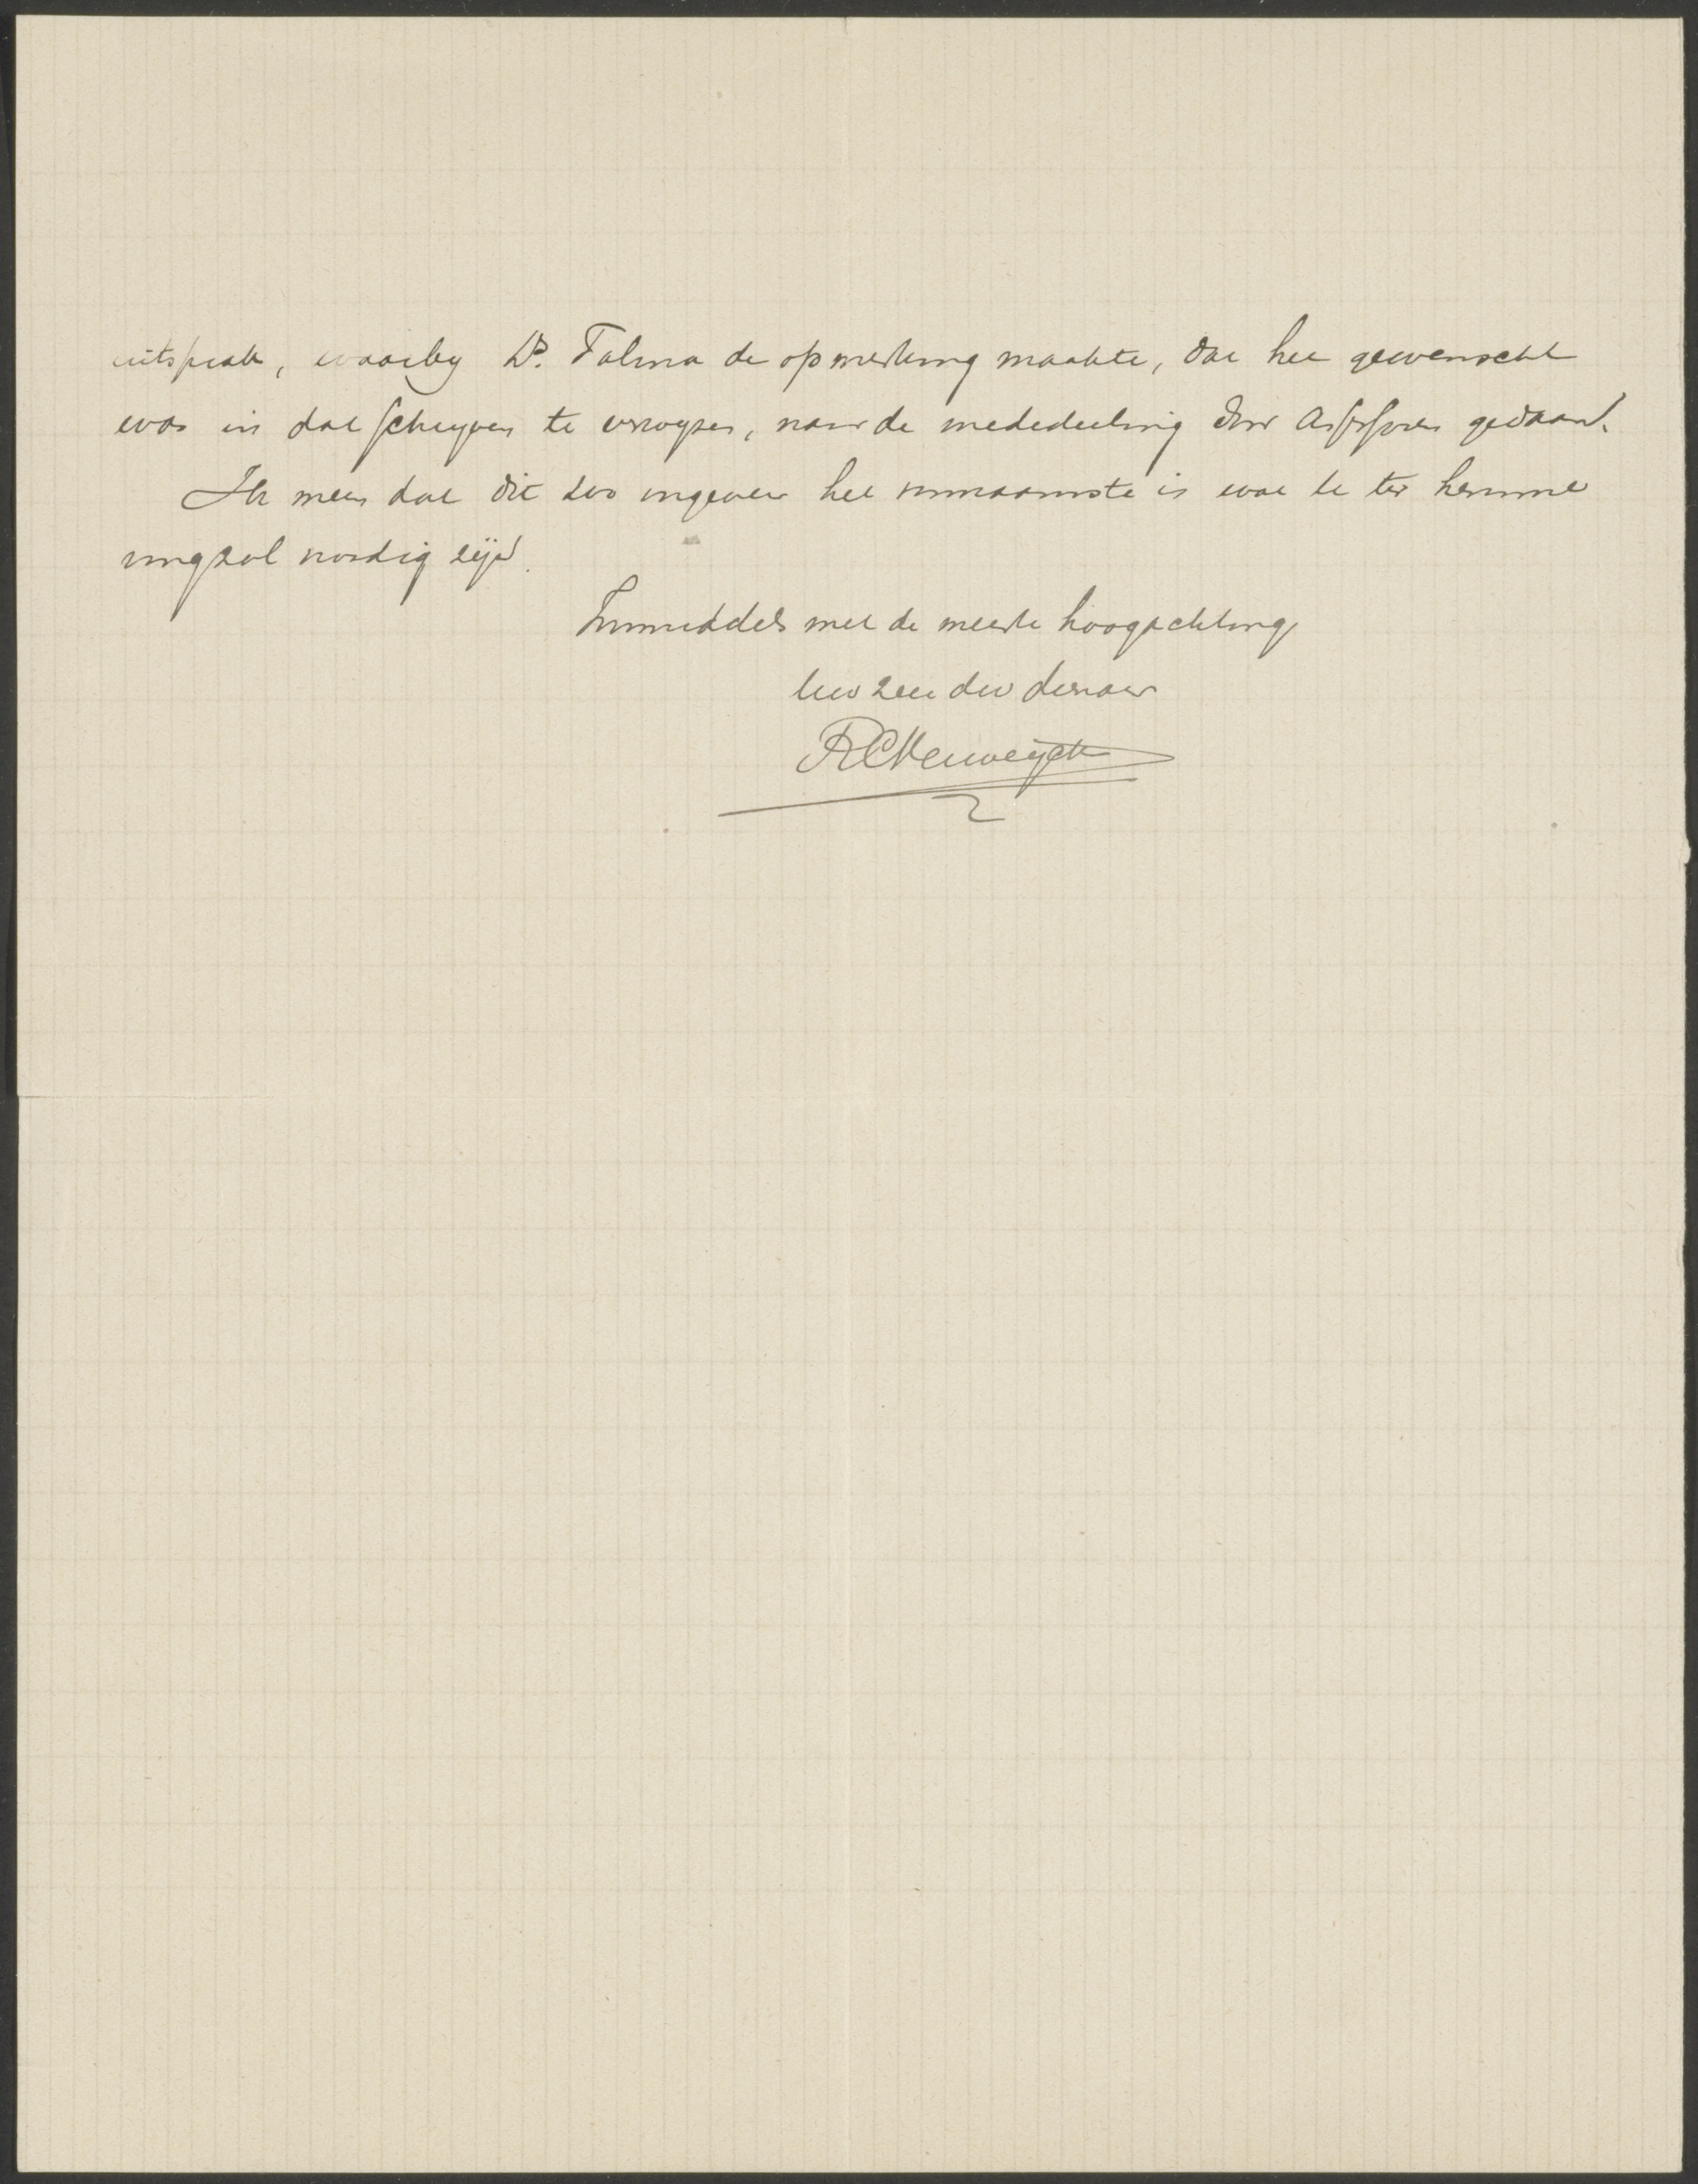 uitsprak, waarby Ds. Talma de opmerking maakte, dat het gewenscht
was in dat schryven te verwyzen, naar de mededeeling door Assessoren gedaan.
Ik meen dat dit zoo ongeveer het voornaamste is wat te ter kenne
ming zal noodig zijn.
Inmiddels met de meeste hoogachting,
Uw zeer dw dienaar